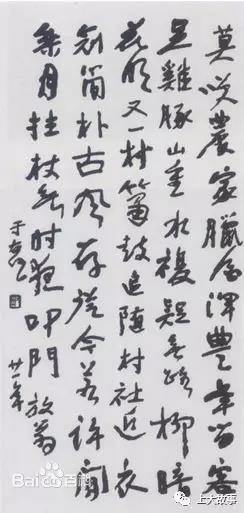 莫咲農家臘酒渾豐年留客
足雞豚山重水複疑無路柳暗
花明又一村簫鼓追隨村社近衣
冠簡朴古風存從今若許閒
乘月拄杖無時夜叩門 放翁
于右任
Bai百科
上大故事